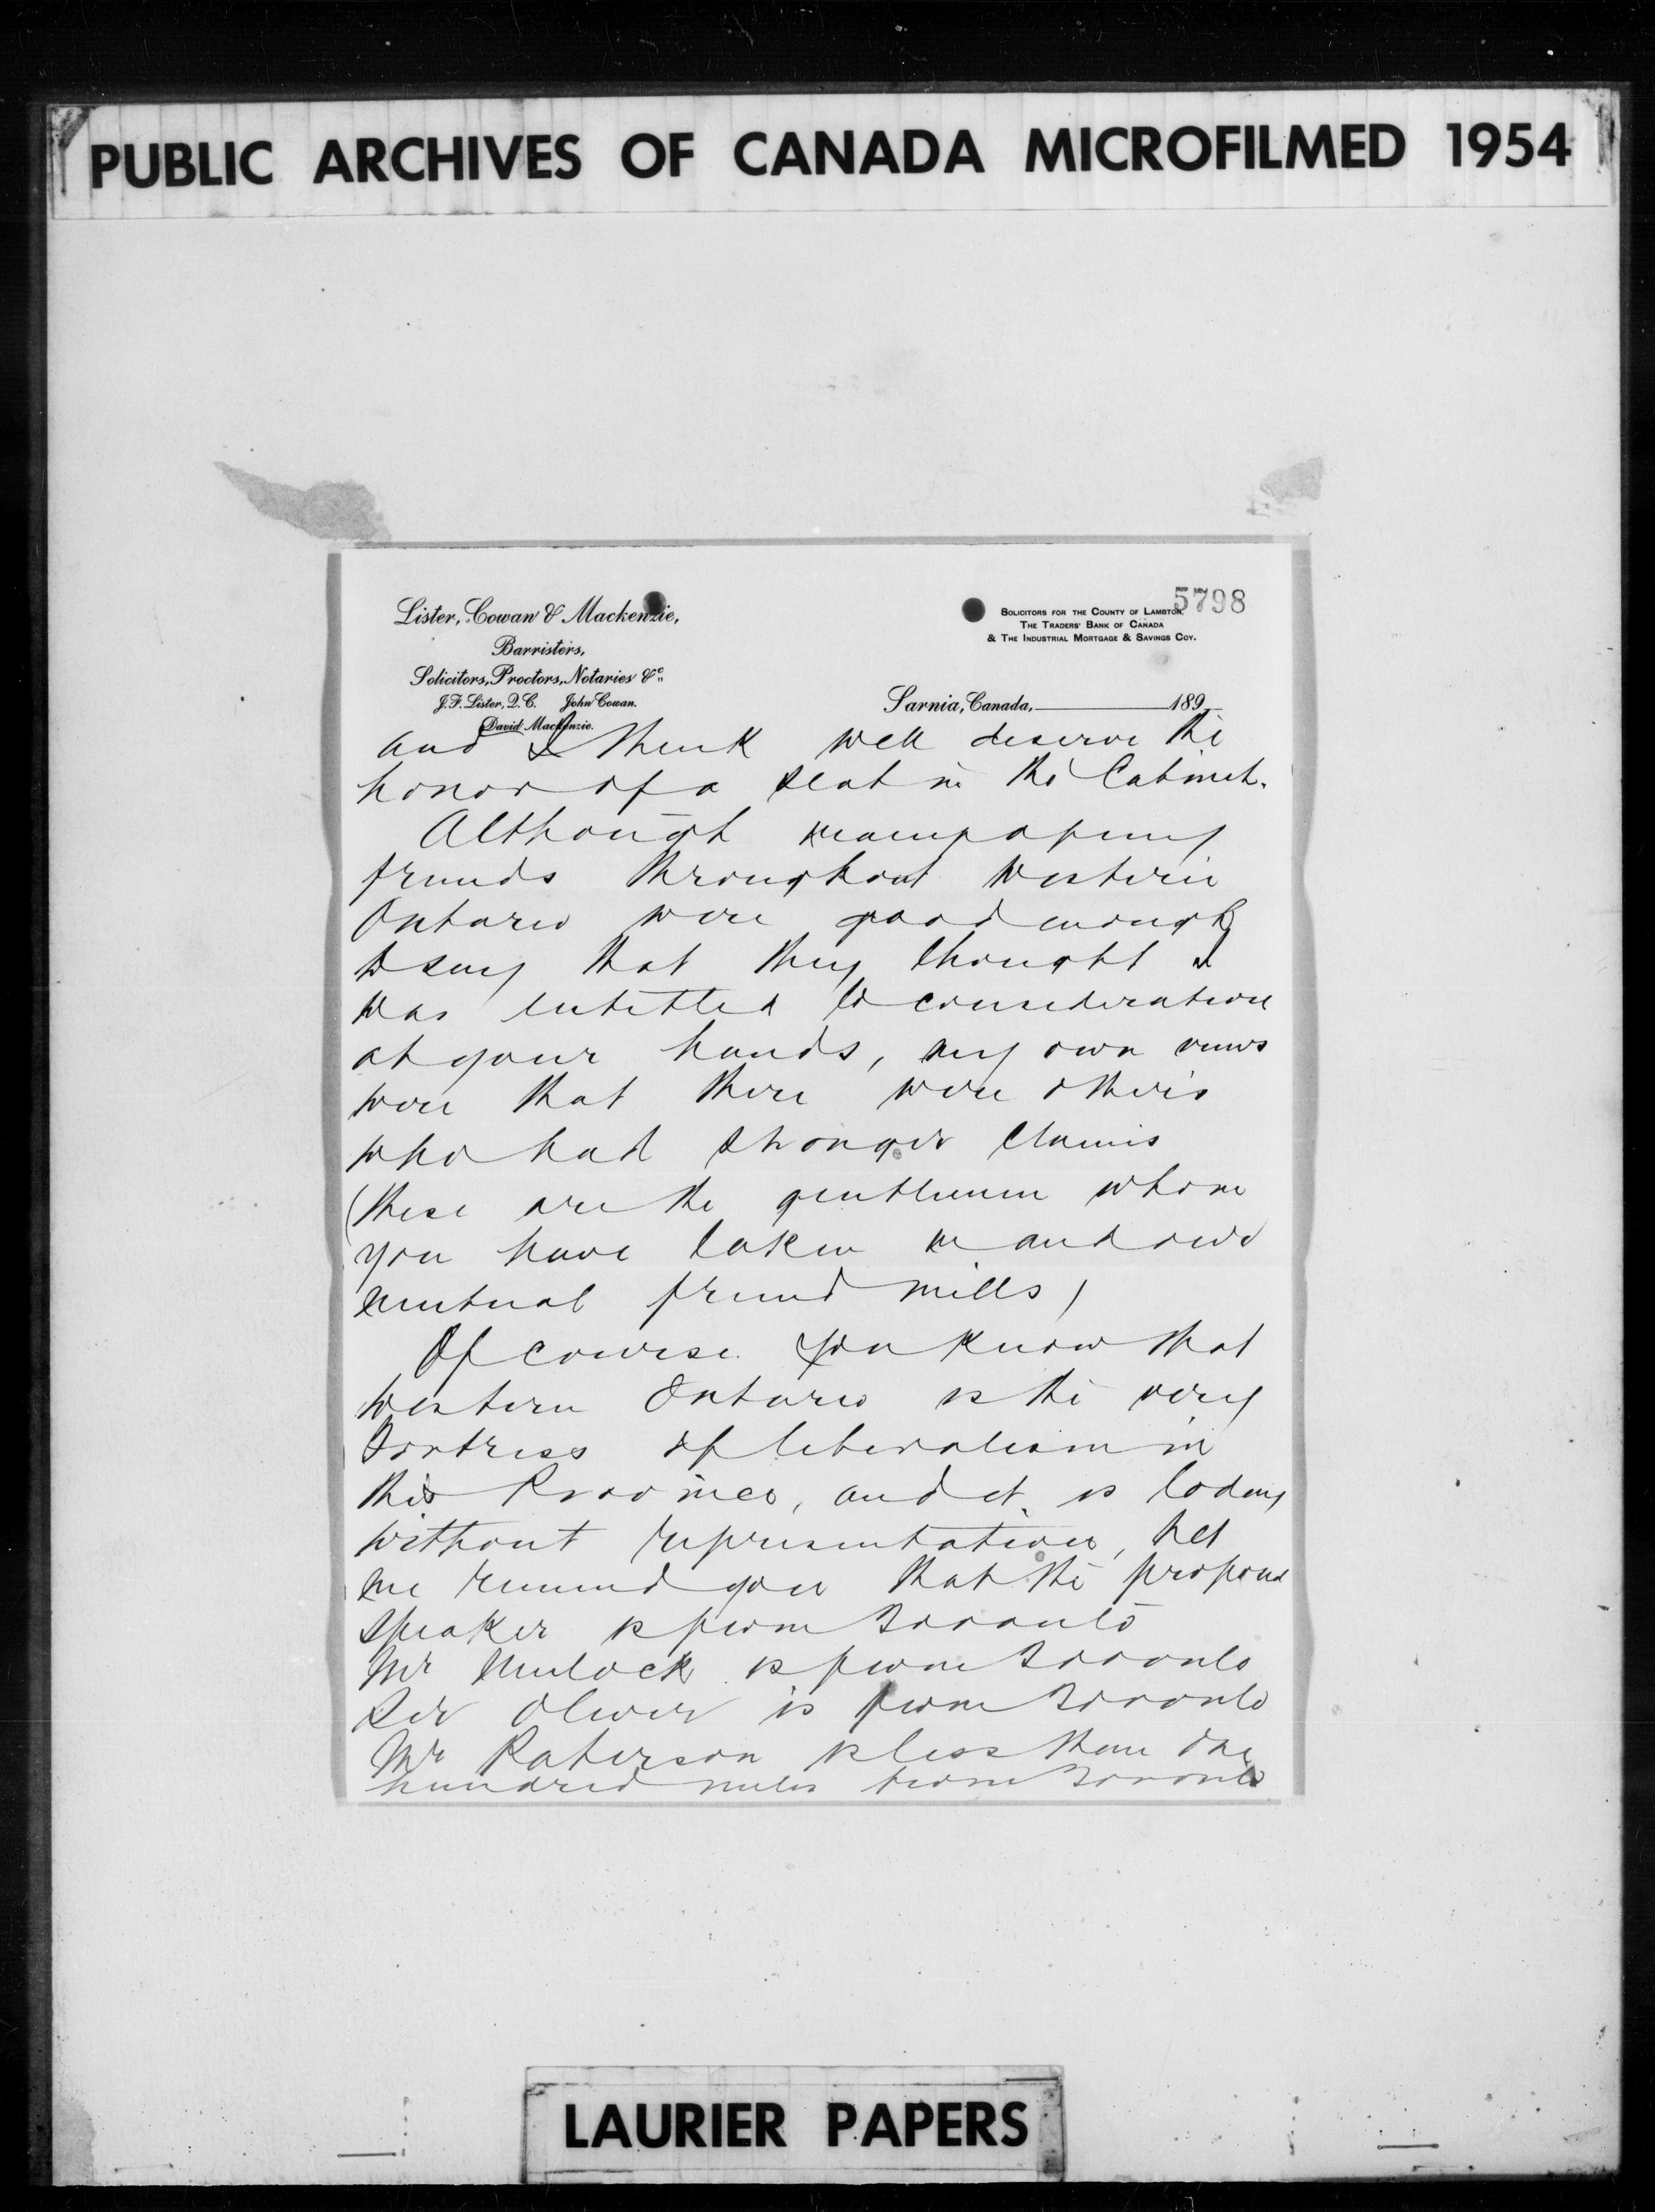 PUBLIC ARCHIVES OF CANADA MICROFILMED 1954
5798
Lister, Cowan & Mackenzie,
Barristers,
Solicitors, Proctors, Notaries &c.
J. F. Lister, Q. C. John Cowan.
David Mackenzie.
SOLICITORS FOR THE COUNTY OF LAMBTON.
THE TRADERS' BANK OF CANADA
& THE INDUSTRIAL MORTGAGE & SAVINGS COY.
Sarnia, Canada, 189
and I think well deserve the
honor of a seat in the Cabinet.
Although many of my
friends throughout Western
Ontario were good enough
to say that they thought I
was entitled to consideration
at your hands, my own views
were that there were others
who had stronger claims
(these are the gentlemen whom
you have taken in and our
mutual friend Mills)
Of course you know that
Western Ontario is the very
Fortress of liberalism in
this Province, and it is today
without representation, let
me remind you that the proposed
Speaker is from Toronto
Mr Mulock is from Toronto
Sir Oliver is from Toronto
Mr Paterson is less than one
hundred miles from Toronto
LAURIER PAPERS